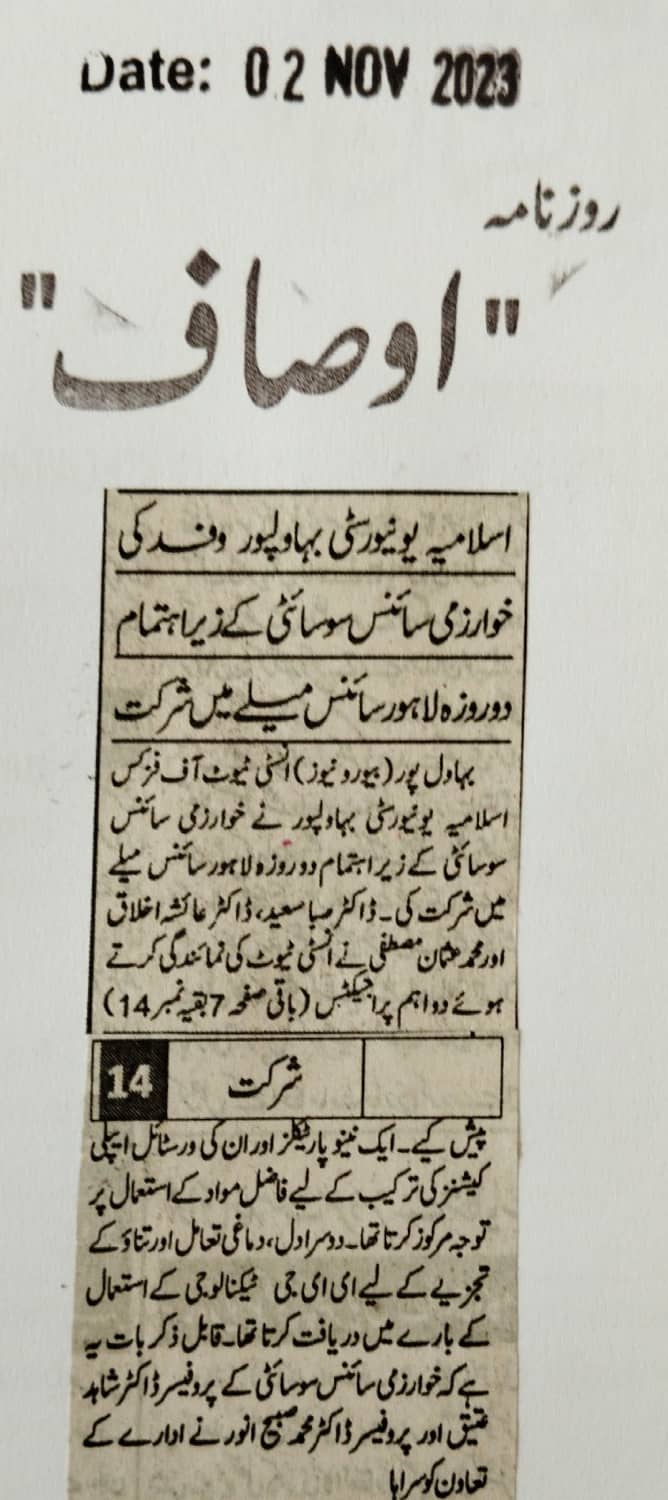 Date: 02 NOV 2023
روزنامہ
"اوصاف"
اسلامیہ یونیورسٹی بہاولپور وفد کی
خوارزمی سائنس سوسائٹی کے زیر اہتمام
دو روزہ لاہور سائنس میلے میں شرکت
بہاول پور (بیورو نیوز) انسٹی ٹیوٹ آف فزکس
اسلامیہ یونیورسٹی بہاولپور نے خوارزمی سائنس
سوسائٹی کے زیر اہتمام دو روزہ لاہور سائنس میلے
میں شرکت کی۔ ڈاکٹر صبا سعید، ڈاکٹر عائشہ اخلاق
اور محمد عثمان مصطفی نے انسٹی ٹیوٹ کی نمائندگی کرتے
ہوئے دو اہم پراجیکٹس (باقی صفحہ 7 بقیہ نمبر 14)
شرکت 14
پیش کیے۔ ایک نینو پارٹیکلز اور ان کی ورسٹائل ایپلی
کیشنز کی ترکیب کے لیے فاضل مواد کے استعمال پر
توجہ مرکوز کرتا تھا۔ دوسرا دل، دماغی تعامل اور تناؤ کے
تجزیے کے لیے ای ای جی ٹیکنالوجی کے استعمال
کے بارے میں دریافت کرتا تھا۔ قابل ذکر بات یہ
ہے کہ خوارزمی سائنس سوسائٹی کے پروفیسر ڈاکٹر شاہد
عتیق اور پروفیسر ڈاکٹر محمد صبیح انور نے ادارے کے
تعاون کو سراہا